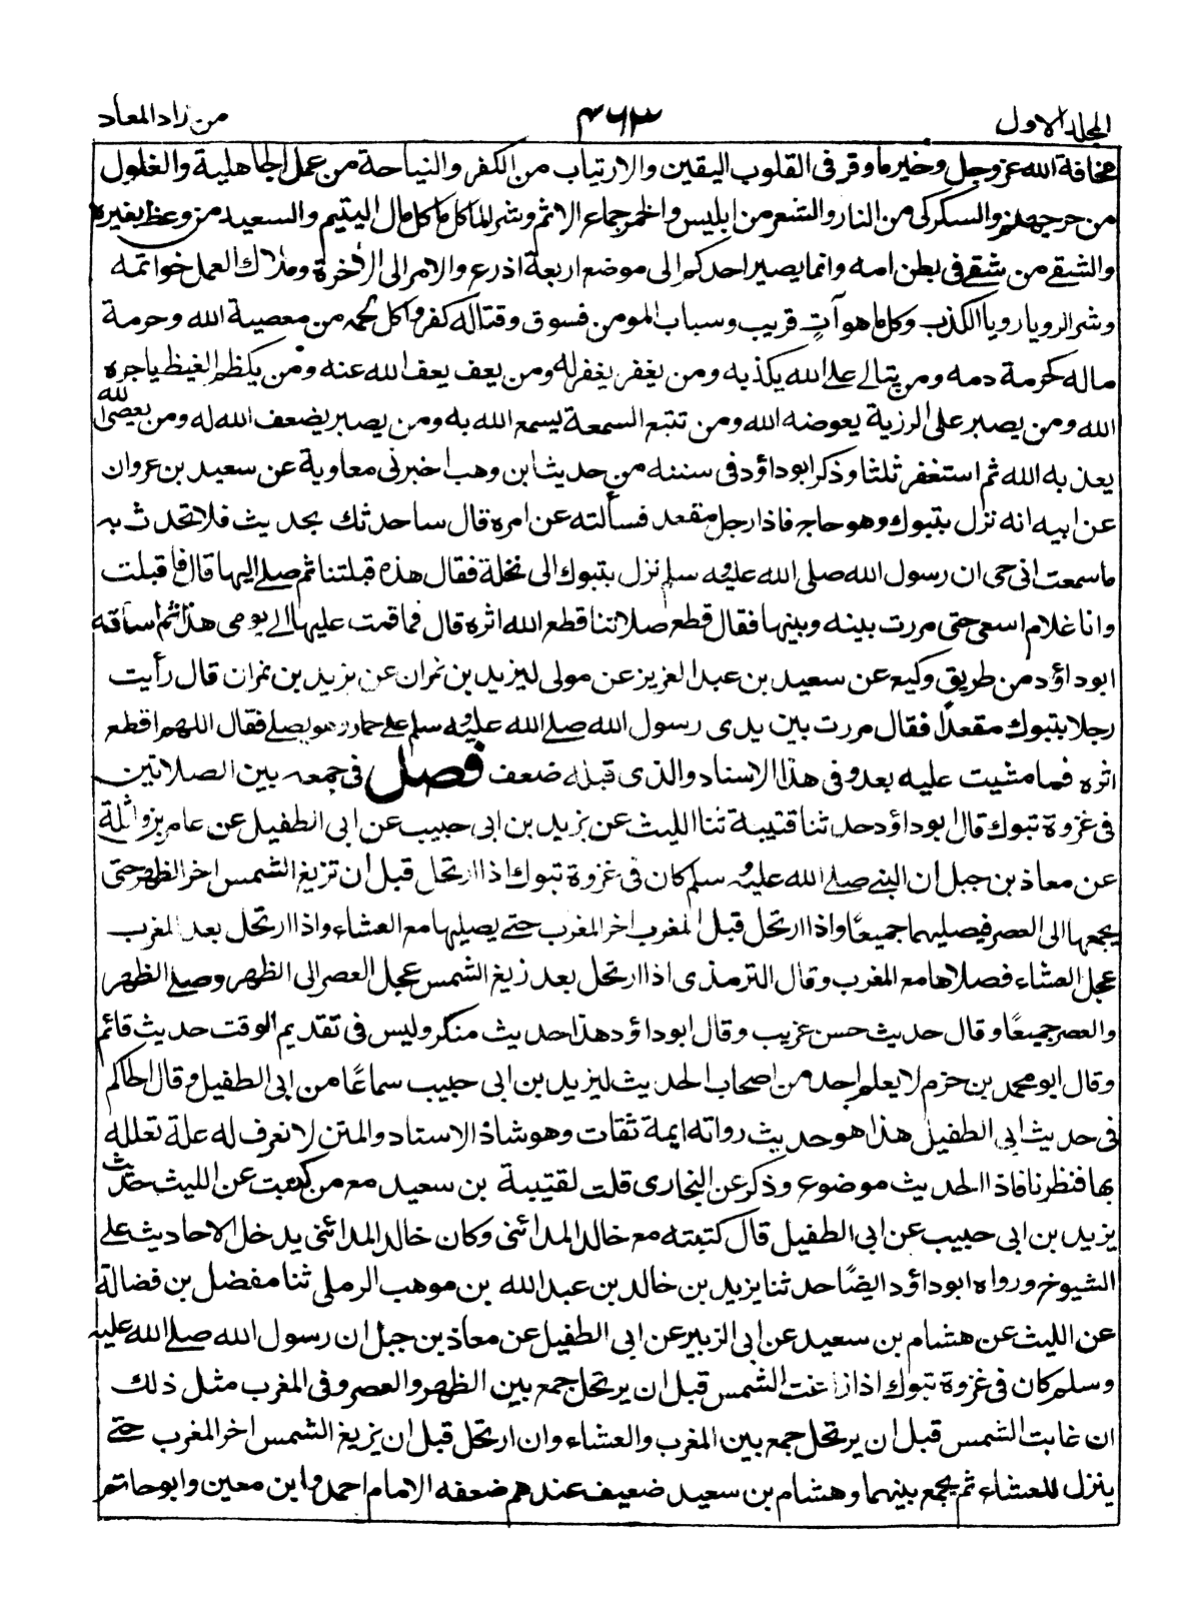 المجلد الاول ٤٦٣ من زاد المعاد
مخافة الله عزوجل وخير ما وقر فى القلوب اليقين والارتياب من الكفر والنياحة من عمل الجاهلية والغلول
من حرجهنم والسكر كى من النار والشعر من ابليس والخمر جماع الاثم وشر الماكل ماكل مال اليتيم والسعيد من وعظ بغيره
والشقے من شقے فى بطن امه وانما يصير احدكم الى موضع اربعة اذرع والامر الى الاخرة وملاك العمل خواتمه
وشر الرويا رويا الكذب وكل ما هو آتٍ قريب وسباب المومن فسوق وقتاله كفر واكل لحمه من معصية الله وحرمة
ماله كحرمة دمه ومن يتالے علے الله يكذبه ومن يغفر يغفر له ومن يعف يعف الله عنه ومن يكظم الغيظ ياجره
الله ومن يصبر على الرزية يعوضه الله ومن تتبع السمعة يسمع الله به ومن يصبر يضعف الله له ومن يعصى الله
يعذبه الله ثم استغفر ثلثا وذكر ابو داؤد فى سننه من حديث ابن وهب اخبرنى معاوية عن سعيد بن عزوان
عن ابيه انه نزل بتبوك وهو حاج فاذا رجل مقعد فسألته عن امره قال ساحدثك بحديث فلا تحدث به
ما سمعت انى حى ان رسول الله صلى الله عليه وسلم نزل بتبوك الى نخلة فقال هذه قبلتنا ثم صلے اليها قال فاقبلت
وانا غلام اسعى حتى مررت بينه وبينها فقال قطع صلاتنا قطع الله اثره قال فما قمت عليها الے يومى هذا ثم اسباقه
ابو داؤد من طريق وكيع عن سعيد بن عبد العزيز عن مولى ليزيد بن نمران عن يزيد بن نمران قال رأيت
رجلا بتبوك مقعدا فقال مررت بين يدى رسول الله صلے الله عليه وسلم علے حمار وهو يصلے فقال اللهم اقطع
اثره فما مشيت عليه بعد وفى هذا الاسناد والذى قبله ضعف فصل فى جمعه بين الصلاتين
فى غزوة تبوك قال ابو داؤد حدثنا قتيبة ثنا الليث عن يزيد بن ابى حبيب عن ابى الطفيل عن عامر بن واثلة
عن معاذ بن جبل ان النبے صلے الله عليه وسلم كان فى غزوة تبوك اذا ارتحل قبل ان تزيغ الشمس اخر الظهر حتى
يجمعها الى العصر فيصليهما جميعًا واذا ارتحل قبل المغرب اخر المغرب حتے يصليها مع العشاء واذا ارتحل بعد المغرب
عجل العشاء فصلاها مع المغرب وقال الترمذى اذا ارتحل بعد زيغ الشمس عجل العصر الى الظهر وصلے الظهر
والعصر جميعًا وقال حديث حسن غريب وقال ابو داؤد هذا حديث منكر وليس فى تقديم الوقت حديث قائم
وقال ابو محمد بن حزم لا يعلم احد من اصحاب الحديث ليزيد بن ابى حبيب سماعًا من ابى الطفيل وقال الحاكم
فى حديث ابى الطفيل هذا هو حديث رواته ايمة ثقات وهو شاذ الاسناد والمتن لا نعرف له علة تعلله
بها فنظرنا فاذا الحديث موضوع وذكر عن البخارى قلت لقتيبة بن سعيد مع من كتبت عن الليث حديث
يزيد بن ابى حبيب عن ابى الطفيل قال كتبته مع خالد المدائنى وكان خالد المدائنى يدخل الاحاديث على
الشيوخ ورواه ابو داؤد ايضًا حدثنا يزيد بن خالد بن عبد الله بن موهب الرملى ثنا مفضل بن فضالة
عن الليث عن هشام بن سعيد عن ابى الزبير عن ابى الطفيل عن معاذ بن جبل ان رسول الله صلے الله عليه
وسلم كان فى غزوة تبوك اذا زاغت الشمس قبل ان يرتحل جمع بين الظهر والعصر وفى المغرب مثل ذلك
ان غابت الشمس قبل ان يرتحل جمع بين المغرب والعشاء وان ارتحل قبل ان يزيغ الشمس اخر المغرب حتے
ينزل للعشاء ثم يجمع بينهما وهشام بن سعيد ضعيف عندهم ضعفه الامام احمد وابن معين وابو حاتم